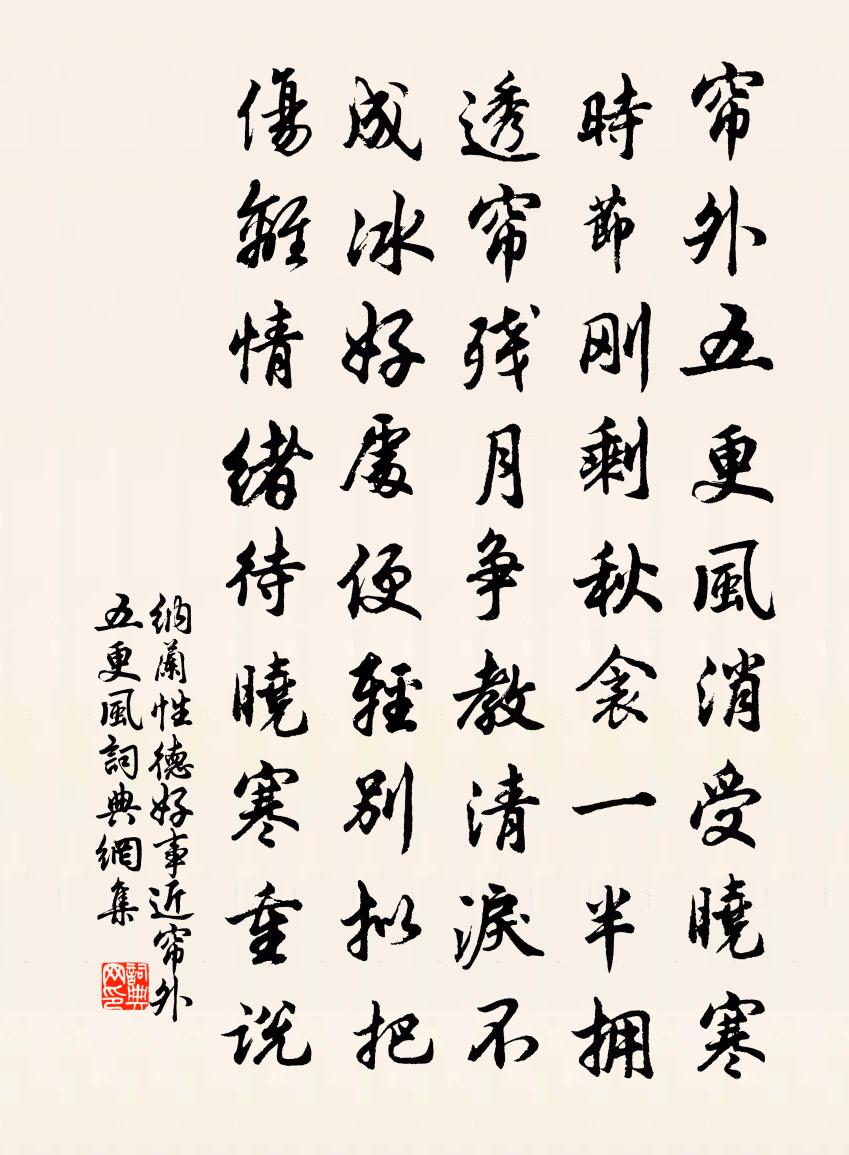 帘外五更風消受曉寒
時節刚剩秋衾一半拥
透帘残月争教清淚不
成冰好處便輕別拟把
傷離情緒待曉寒重说
纳蘭性德好事近帘外
五更風詞典網集
詞典網印